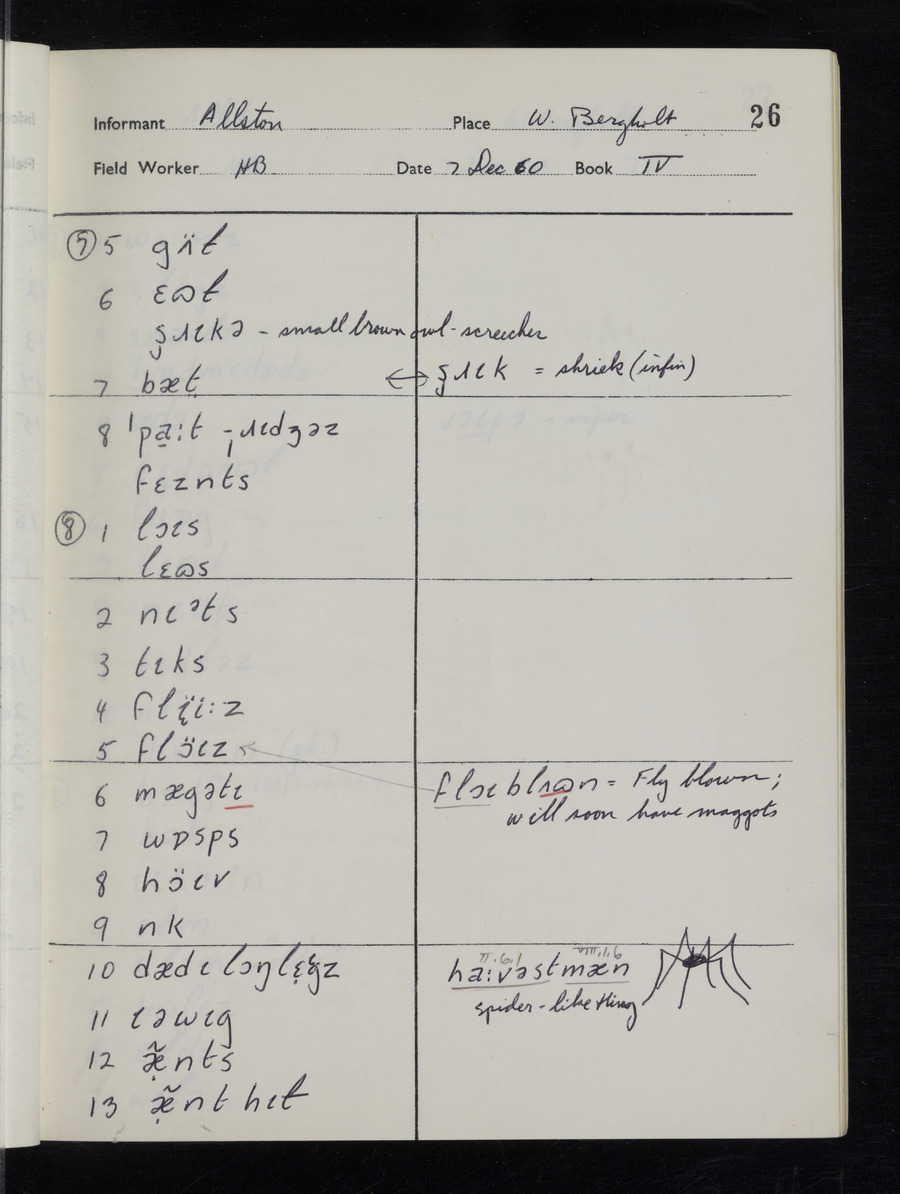 Informant Allston Place W. Bergholt 26
Field Worker HB Date 7 Dec 60 Book IV
⑦ 5 gʌ̈t
6 ɛɷt
ʂɹɩkə - small brown owl - screecher
7 bæt ⟷ ʂɹɩk = shriek (infin)
8 ˈpa̱ːt -ˌɹɩdʒəz
fɛznts
⑧ 1 lɔɩs
lɛɷs
2 nɩᵊts
3 tɩks
4 flɪ̈iːz
5 flɔ̈ɩz
6 mægətɩ flɔɩblʌɷn = Fly blown;
will soon have maggots
7 wɒsps
8 hɔ̈ɩv
9 nk
10 dædɩ lɔŋlɛ̣gz haːvəstmæn
II.6.1 VIII.1.6
spider-like thing
11 ɩəwɩg
12 æ̣̃nts
13 æ̣̃nt hɩt